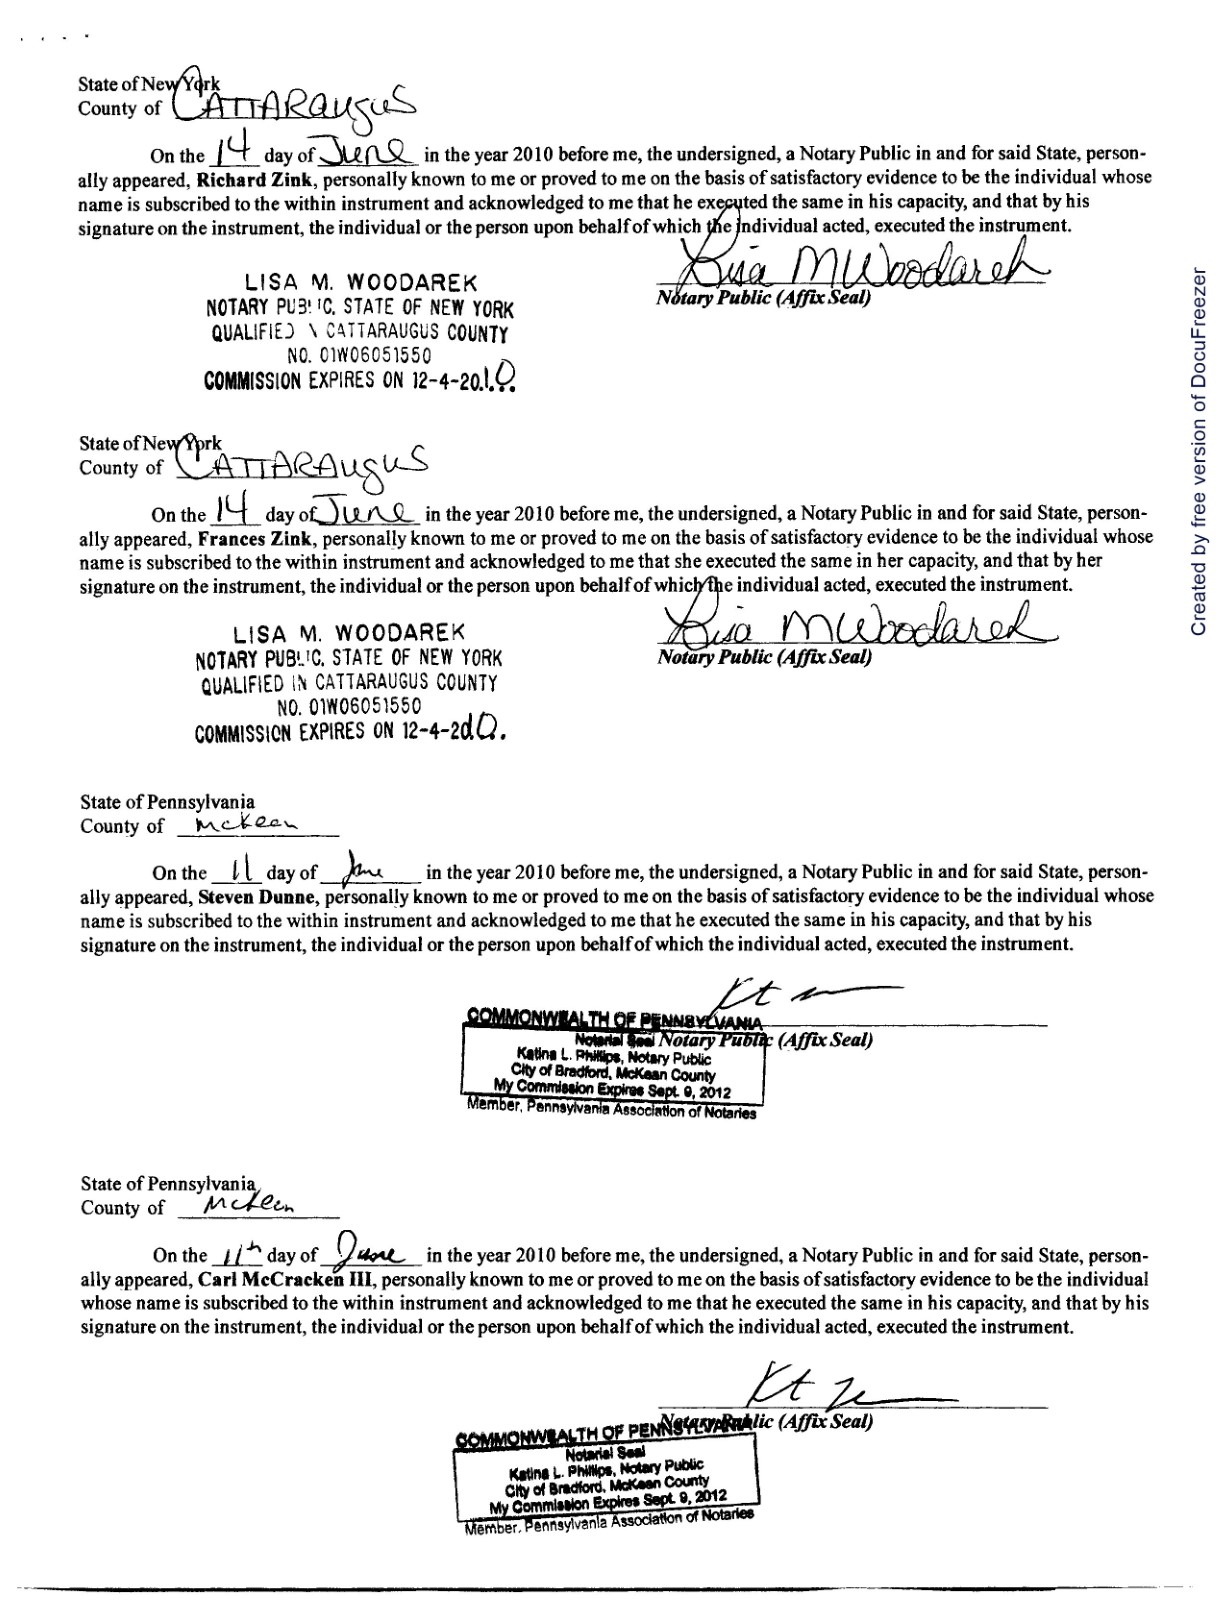 State of New York
County of CATTARAugus
On the 14 day of June in the year 2010 before me, the undersigned, a Notary Public in and for said State, person-
ally appeared, Richard Zink, personally known to me or proved to me on the basis of satisfactory evidence to be the individual whose
name is subscribed to the within instrument and acknowledged to me that he executed the same in his capacity, and that by his
signature on the instrument, the individual or the person upon behalf of which the individual acted, executed the instrument.
Lisa M Woodarek
Notary Public (Affix Seal)
LISA M. WOODAREK
NOTARY PUBLIC, STATE OF NEW YORK
QUALIFIED IN CATTARAUGUS COUNTY
NO. 01WO6051550
COMMISSION EXPIRES ON 12-4-2010.
State of New York
County of CATTARAugus
On the 14 day of June in the year 2010 before me, the undersigned, a Notary Public in and for said State, person-
ally appeared, Frances Zink, personally known to me or proved to me on the basis of satisfactory evidence to be the individual whose
name is subscribed to the within instrument and acknowledged to me that she executed the same in her capacity, and that by her
signature on the instrument, the individual or the person upon behalf of which the individual acted, executed the instrument.
Lisa M Woodarek
Notary Public (Affix Seal)
LISA M. WOODAREK
NOTARY PUBLIC, STATE OF NEW YORK
QUALIFIED IN CATTARAUGUS COUNTY
NO. 01WO6051550
COMMISSION EXPIRES ON 12-4-2010.
State of Pennsylvania
County of McKean
On the 11 day of June in the year 2010 before me, the undersigned, a Notary Public in and for said State, person-
ally appeared, Steven Dunne, personally known to me or proved to me on the basis of satisfactory evidence to be the individual whose
name is subscribed to the within instrument and acknowledged to me that he executed the same in his capacity, and that by his
signature on the instrument, the individual or the person upon behalf of which the individual acted, executed the instrument.
Notary Public (Affix Seal)
COMMONWEALTH OF PENNSYLVANIA
Notarial Seal
Katina L. Phillips, Notary Public
City of Bradford, McKean County
My Commission Expires Sept. 9, 2012
Member, Pennsylvania Association of Notaries
State of Pennsylvania
County of McKean
On the 11th day of June in the year 2010 before me, the undersigned, a Notary Public in and for said State, person-
ally appeared, Carl McCracken III, personally known to me or proved to me on the basis of satisfactory evidence to be the individual
whose name is subscribed to the within instrument and acknowledged to me that he executed the same in his capacity, and that by his
signature on the instrument, the individual or the person upon behalf of which the individual acted, executed the instrument.
Notary Public (Affix Seal)
COMMONWEALTH OF PENNSYLVANIA
Notarial Seal
Katina L. Phillips, Notary Public
City of Bradford, McKean County
My Commission Expires Sept. 9, 2012
Member, Pennsylvania Association of Notaries
Created by free version of DocuFreezer